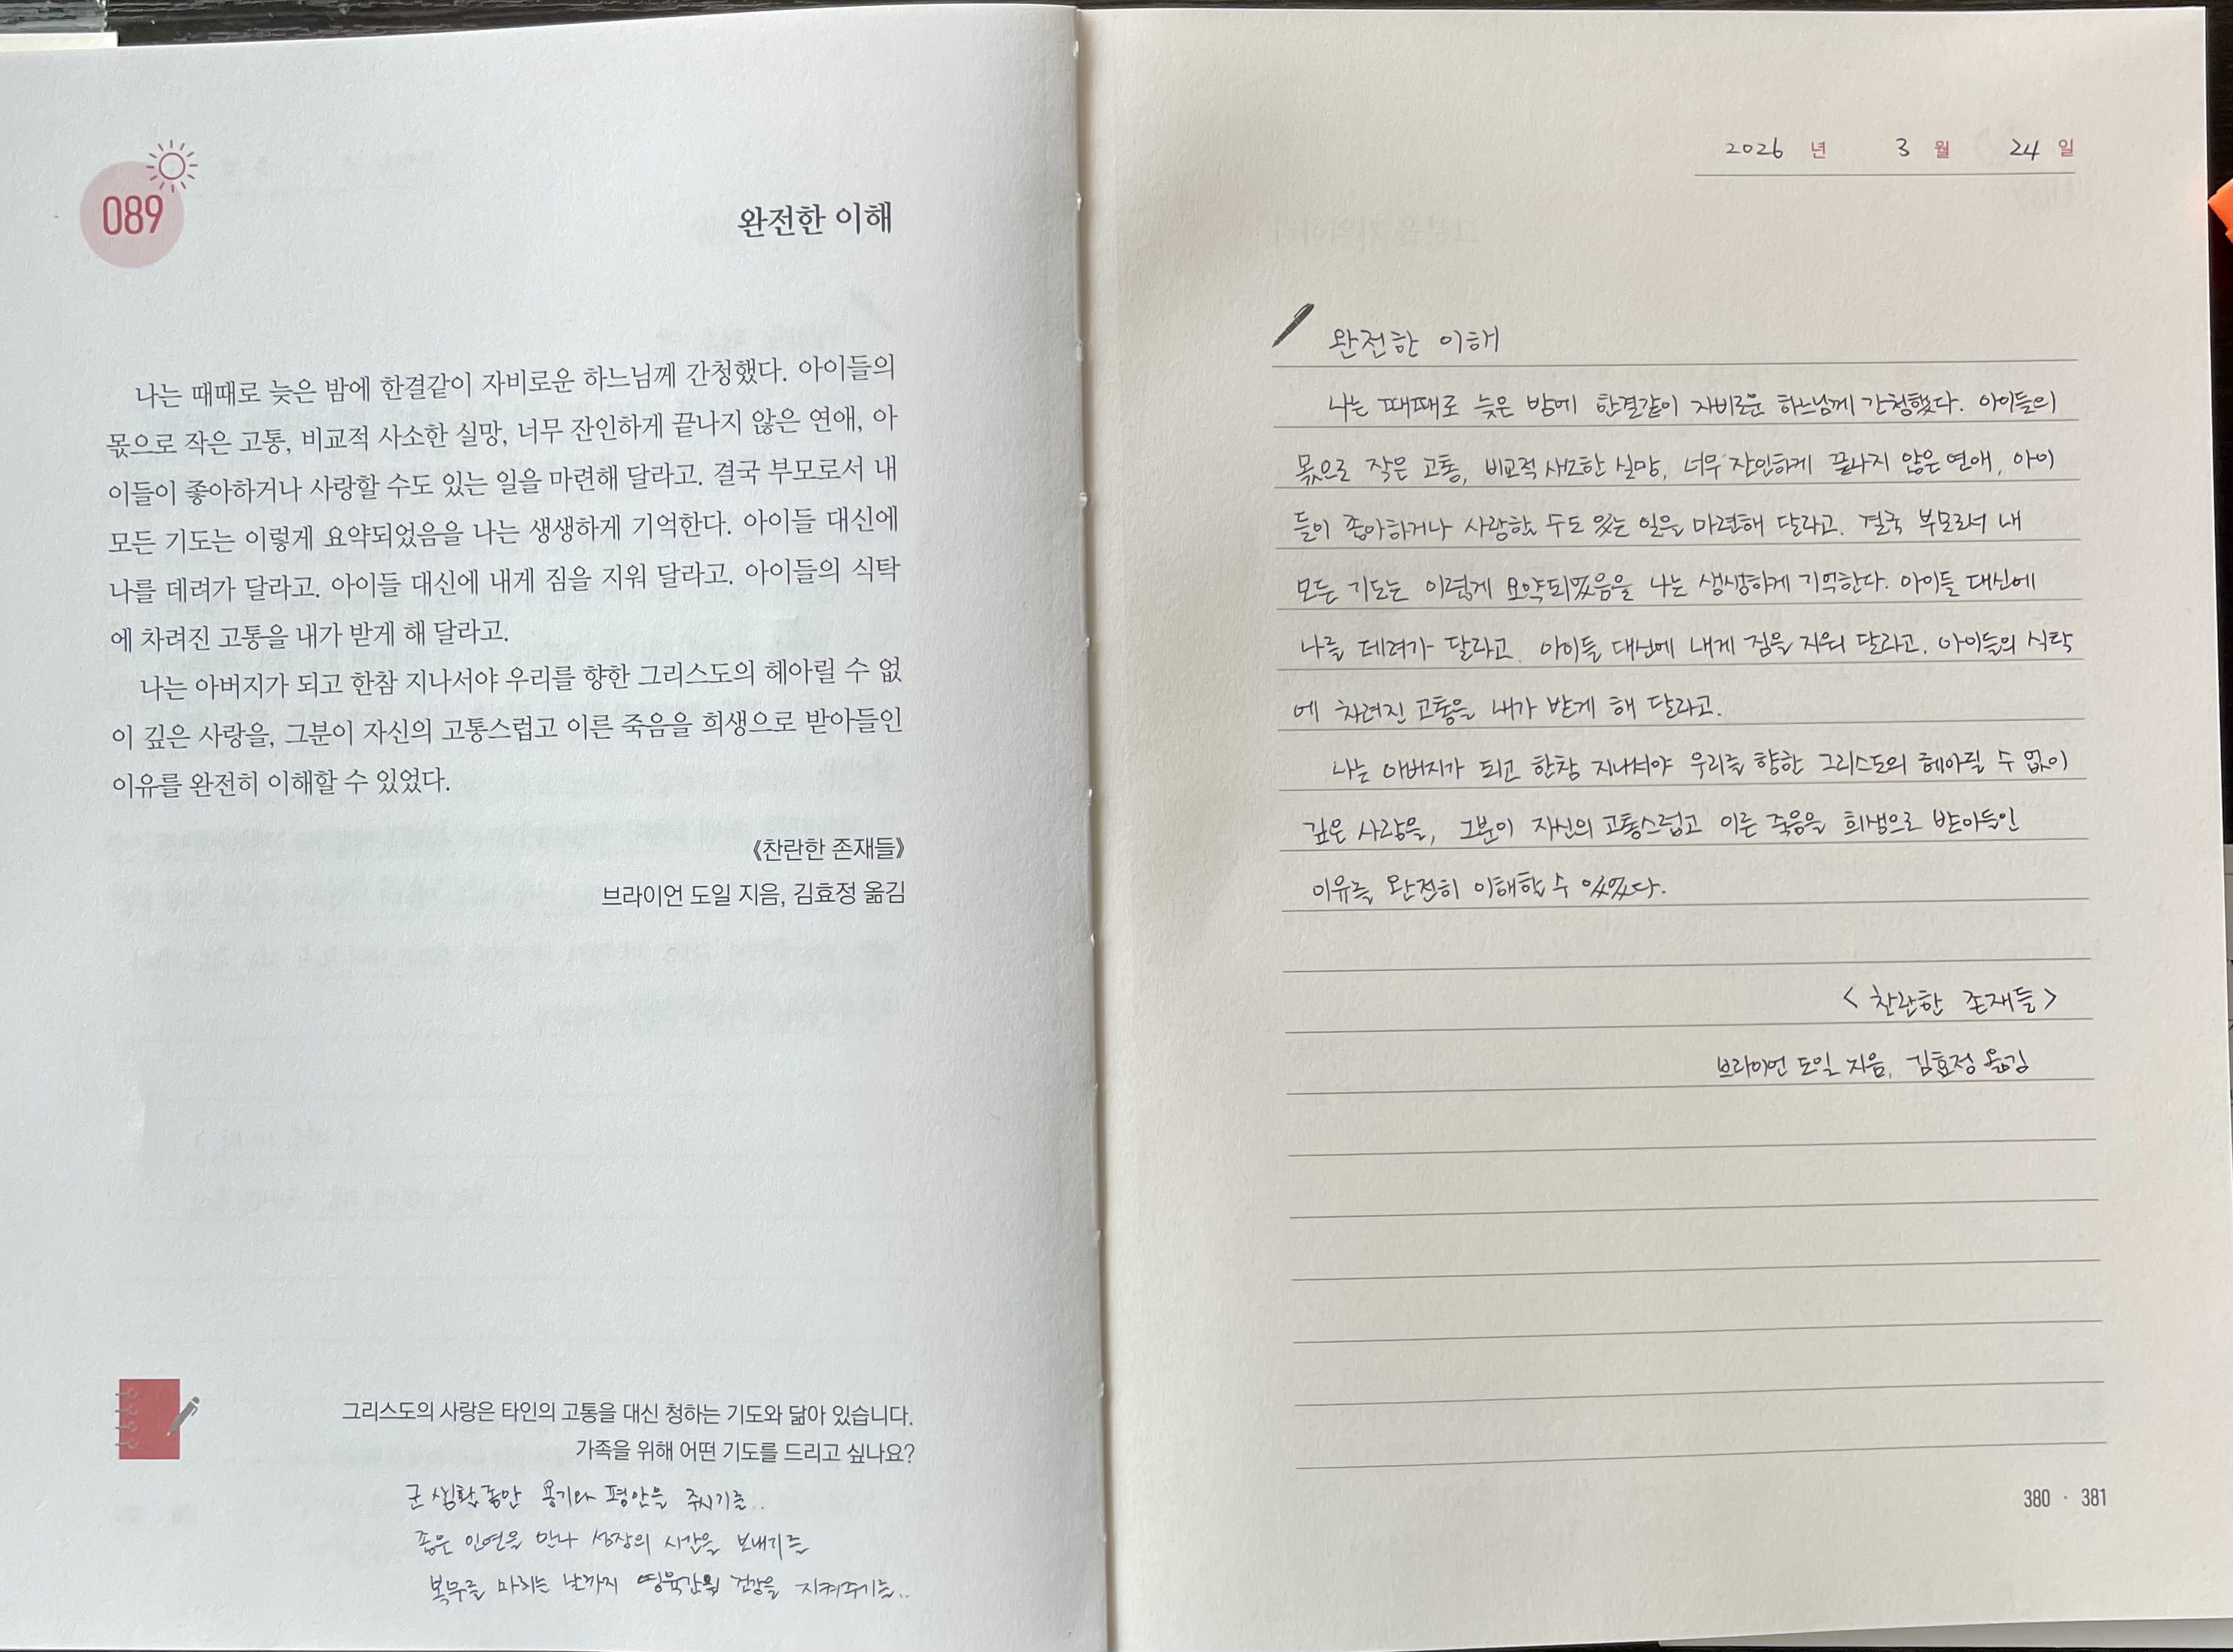 089
완전한 이해
나는 때때로 늦은 밤에 한결같이 자비로운 하느님께 간청했다. 아이들의
몫으로 작은 고통, 비교적 사소한 실망, 너무 잔인하게 끝나지 않은 연애, 아
이들이 좋아하거나 사랑할 수도 있는 일을 마련해 달라고. 결국 부모로서 내
모든 기도는 이렇게 요약되었음을 나는 생생하게 기억한다. 아이들 대신에
나를 데려가 달라고. 아이들 대신에 내게 짐을 지워 달라고. 아이들의 식탁
에 차려진 고통을 내가 받게 해 달라고.
나는 아버지가 되고 한참 지나서야 우리를 향한 그리스도의 헤아릴 수 없
이 깊은 사랑을, 그분이 자신의 고통스럽고 이른 죽음을 희생으로 받아들인
이유를 완전히 이해할 수 있었다.
《찬란한 존재들》
브라이언 도일 지음, 김효정 옮김
그리스도의 사랑은 타인의 고통을 대신 청하는 기도와 닮아 있습니다.
가족을 위해 어떤 기도를 드리고 싶나요?
군 생활동안 용기와 평안을 주시기를..
좋은 인연을 만나 성장의 시간을 보내기를
복무를 마치는 날까지 영육간의 건강을 지켜주기를..
2026 년 3 월 24 일
완전한 이해
나는 때때로 늦은 밤에 한결같이 자비로운 하느님께 간청했다. 아이들의
몫으로 작은 고통, 비교적 사소한 실망, 너무 잔인하게 끝나지 않은 연애, 아이
들이 좋아하거나 사랑할 수도 있는 일을 마련해 달라고. 결국 부모로서 내
모든 기도는 이렇게 요약되었음을 나는 생생하게 기억한다. 아이들 대신에
나를 데려가 달라고. 아이들 대신에 내게 짐을 지워 달라고. 아이들의 식탁
에 차려진 고통을 내가 받게 해 달라고.
나는 아버지가 되고 한참 지나서야 우리를 향한 그리스도의 헤아릴 수 없이
깊은 사랑을, 그분이 자신의 고통스럽고 이른 죽음을 희생으로 받아들인
이유를 완전히 이해할 수 있었다.
< 찬란한 존재들 >
브라이언 도일 지음, 김효정 옮김
380 · 381